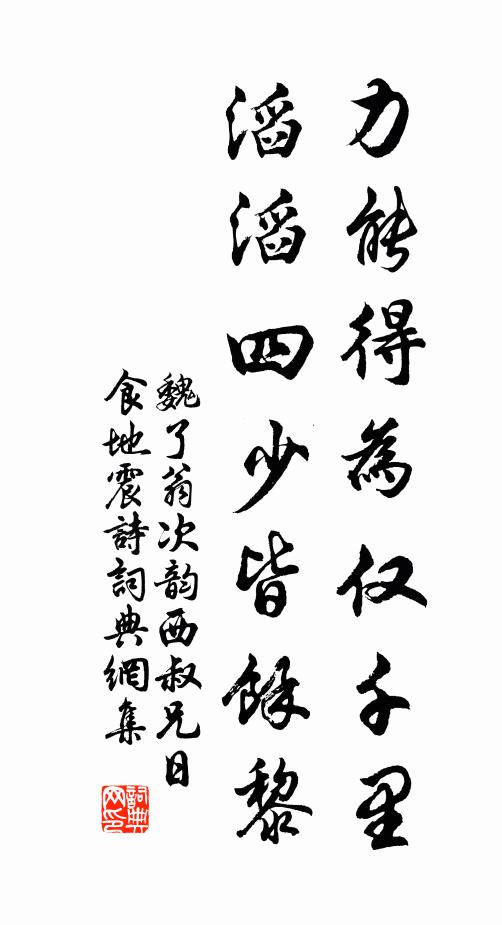 力能得為仅千里
滔滔四少皆餘黎
魏了翁次韵西叔兄日
食地震詩詞典網集
詞典
网印